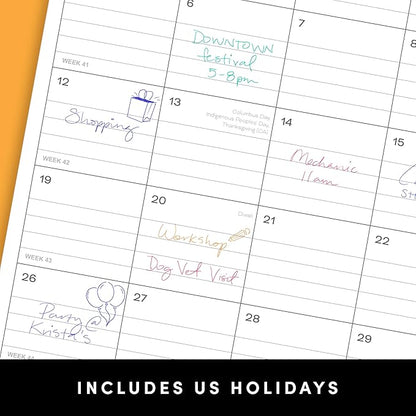 6
7
8
DOWNTOWN
festival
5-8pm
WEEK 41
12
13
Columbus Day
Indigenous Peoples' Day
Thanksgiving (CA)
14
Shopping
Mechanic
11am
WEEK 42
19
20
Diwali
21
22
Workshop
Dog Vet Visit
WEEK 43
26
27
28
29
Party @
Krista's
INCLUDES US HOLIDAYS